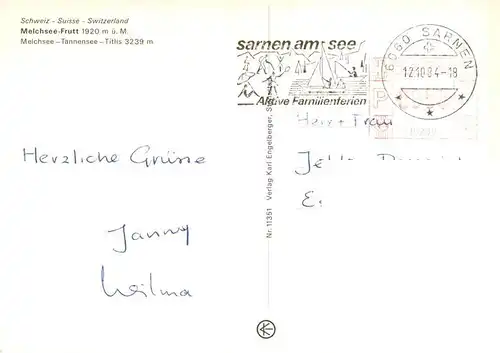 Schweiz - Suisse - Switzerland
Melchsee-Frutt 1920 m ü. M.
Melchsee – Tannensee – Titlis 3239 m
sarnen am see
Aktive Familienferien
6060 SARNEN
12.10.84-18
Herr + Frau
E.
Herzliche Grüsse
Janny
Nr. 11351 Verlag Karl Engelberger,